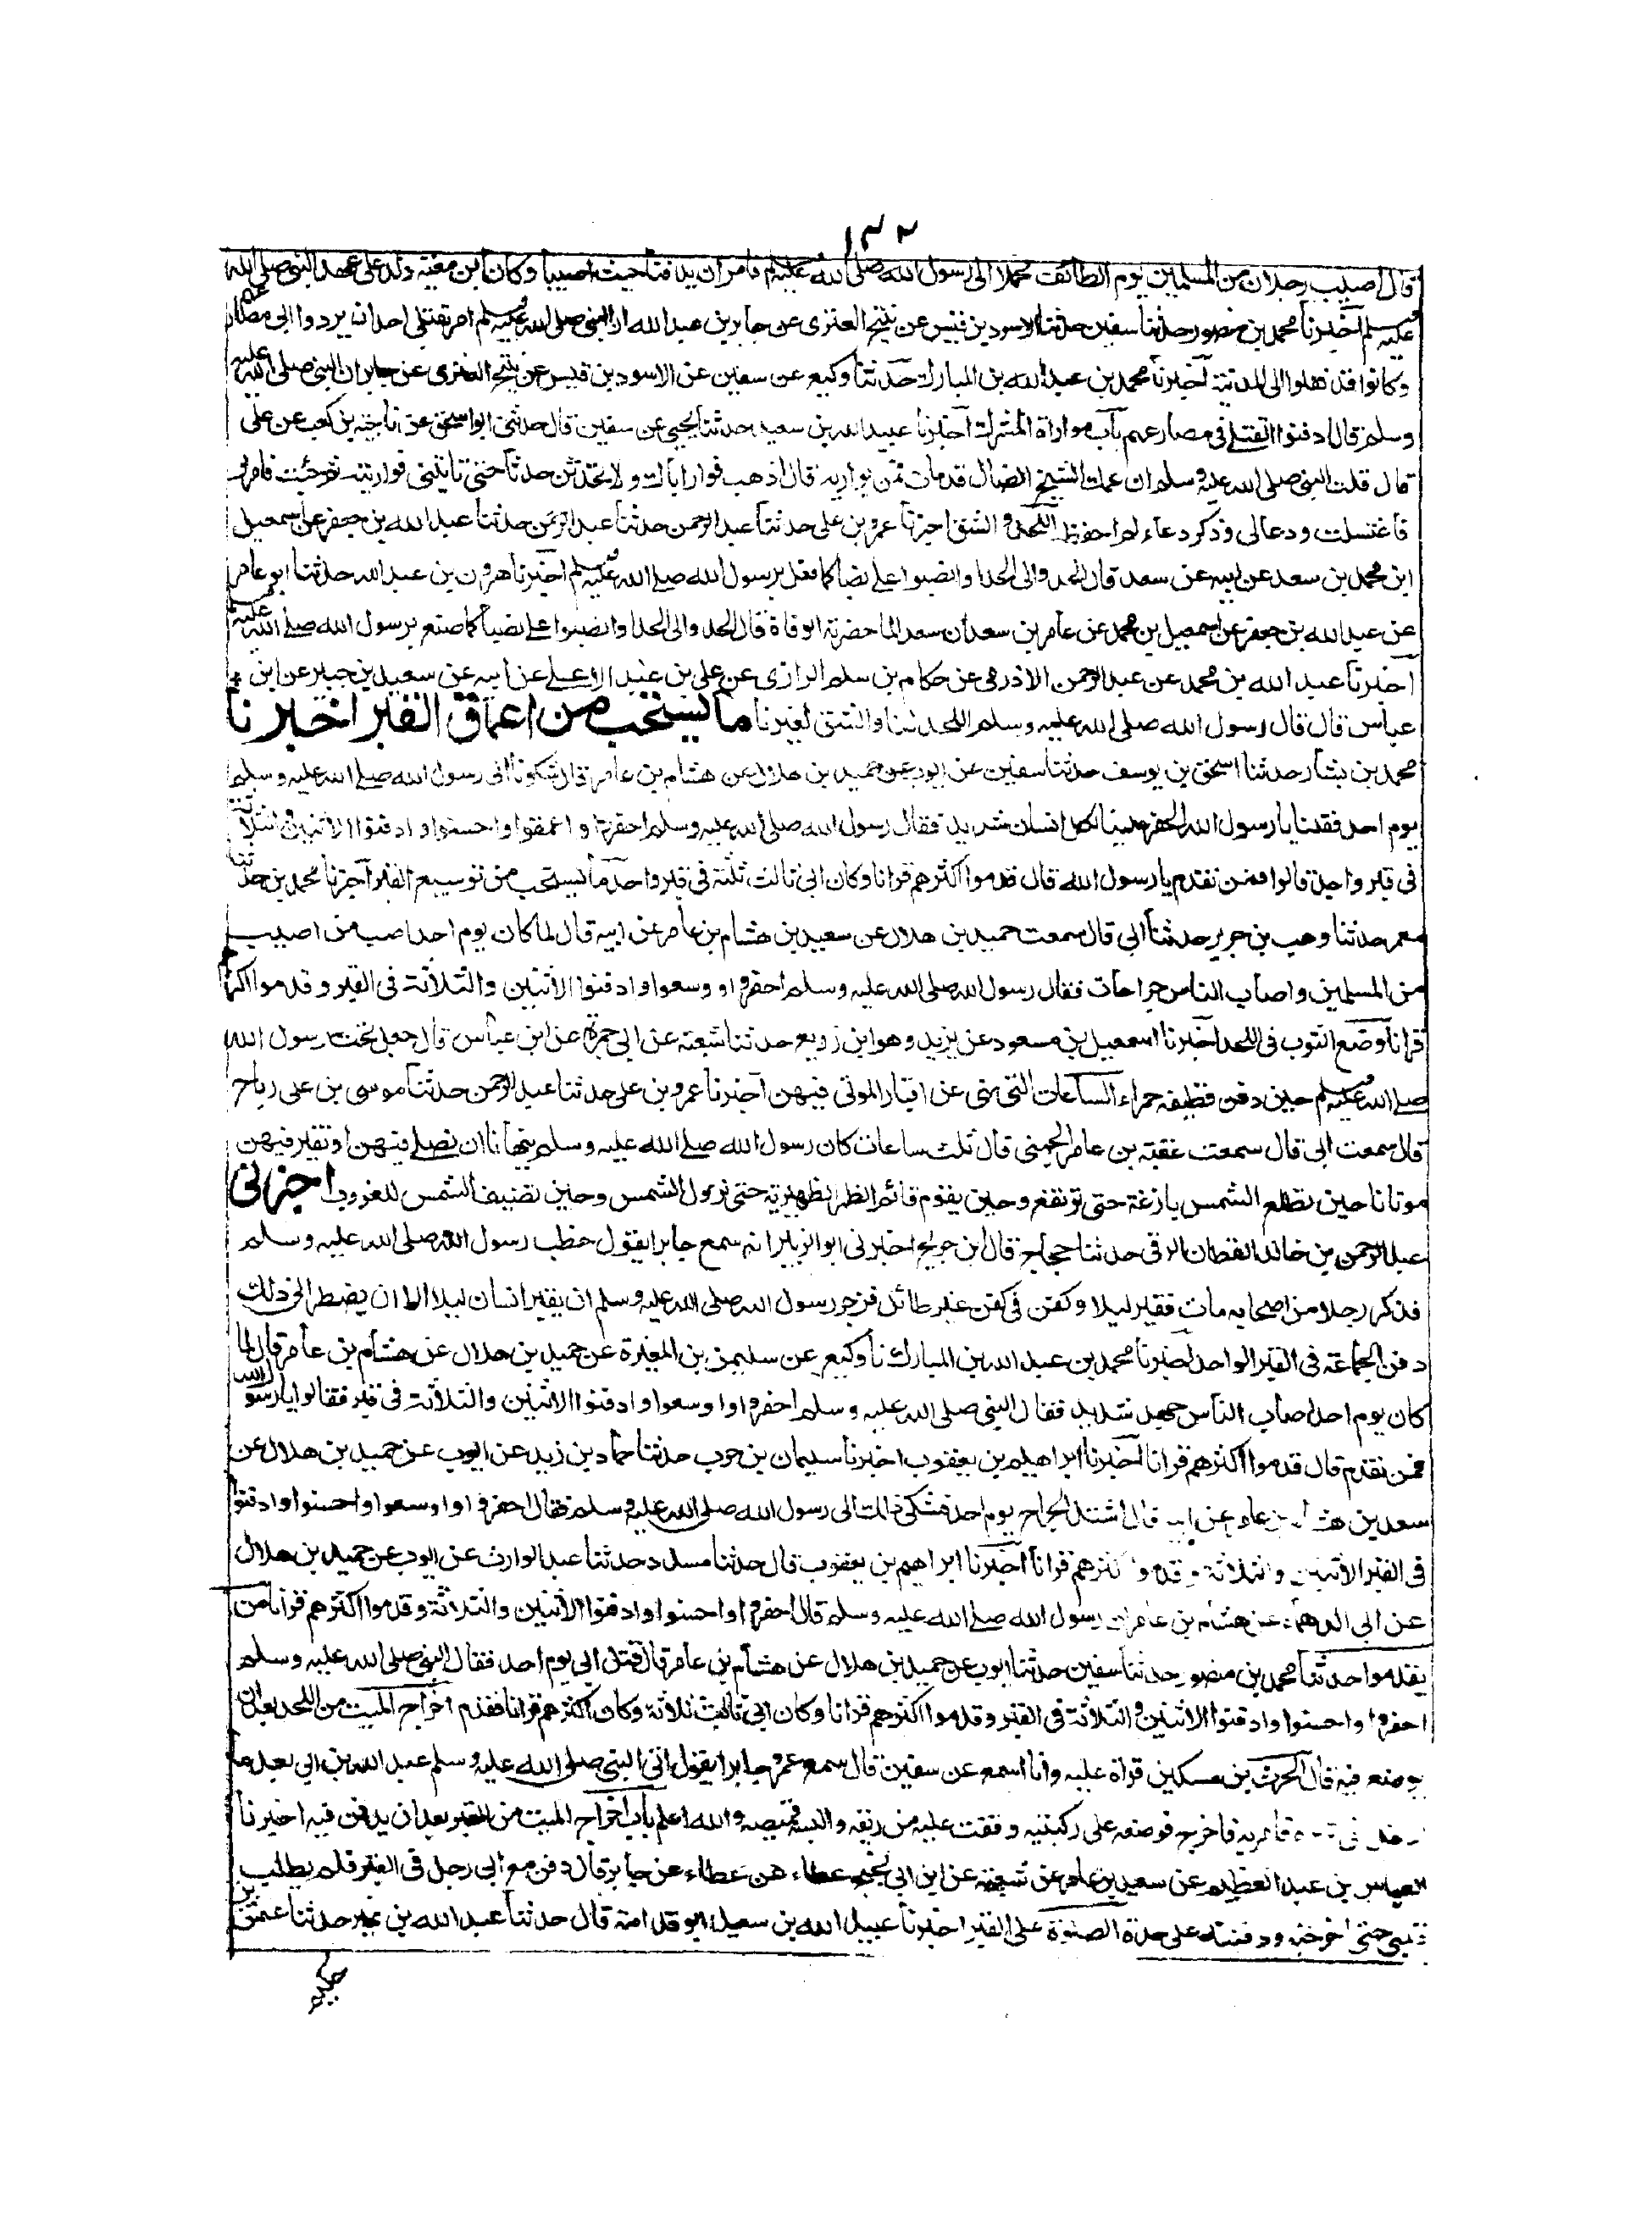 ١٣٢
قال اصيب رجلان من المسلمين يوم الطائف فحملا الى رسول الله صلى الله عليه وسلم فامر ان يدفنا حيث اصيبا وكان ابن معية ولد على عهد النبى صلى الله
عليه وسلم اخبرنا محمد بن منصور حدثنا سفين حدثنا الاسود بن قيس عن نبيح العنزى عن جابر بن عبد الله ان النبى صلى الله عليه وسلم امر بقتلى احد ان يردوا الى مصارعهم
وكانوا قد نقلوا الى المدينة اخبرنا محمد بن عبد الله بن المبارك حدثنا وكيع عن سفين عن الاسود بن قيس عن نبيح العنزى عن جابر ان النبى صلى الله عليه
وسلم قال ادفنوا القتلى فى مصارعهم باب مواراة المشرك اخبرنا عبيد الله بن سعيد حدثنا يحيى عن سفين قال حدثنى ابو اسحق عن ناجية بن كعب عن على
قال قلت للنبى صلى الله عليه وسلم ان عمك الشيخ الضال قد مات فمن يواريه قال اذهب فوار اباك ولا تحدثن حدثا حتى تاتينى فواريته ثم جئت فامرنى
فاغتسلت ودعا لى وذكر دعاء لم احفظه اللحد والشق اخبرنا عمرو بن على حدثنا عبد الرحمن حدثنا عبد الرحمن حدثنا عبد الله بن جعفر عن اسمعيل
ابن محمد بن سعد عن ابيه عن سعد قال الحدوا لى لحدا وانصبوا على نصبا كما فعل برسول الله صلى الله عليه وسلم اخبرنا هرون بن عبد الله حدثنا ابو عامر
عن عبد الله بن جعفر عن اسمعيل بن محمد عن عامر بن سعد ان سعدا لما حضرته الوفاة قال الحدوا لى لحدا وانصبوا على نصبا كما صنع برسول الله صلى الله عليه وسلم
اخبرنا عبد الله بن محمد عن عبد الرحمن الاذرمى عن حكام بن سلم الرازى عن على بن عبد الاعلى عن ابيه عن سعيد بن جبير عن ابن
عباس قال قال رسول الله صلى الله عليه وسلم اللحد لنا والشق لغيرنا ما يستحب من اعماق القبر اخبرنا
محمد بن بشار حدثنا اسحق بن يوسف حدثنا سفين عن ايوب عن حميد بن هلال عن هشام بن عامر قال شكونا الى رسول الله صلى الله عليه وسلم
يوم احد فقلنا يا رسول الله الحفر علينا لكل انسان شديد فقال رسول الله صلى الله عليه وسلم احفروا واعمقوا واحسنوا وادفنوا الاثنين والثلاثة
فى قبر واحد قالوا فمن نقدم يا رسول الله قال قدموا اكثرهم قرانا وكان ابى ثالث ثلثة فى قبر واحد ما يستحب من توسيع القبر اخبرنا محمد بن حدثنا
معمر حدثنا وهب بن جرير حدثنا ابى قال سمعت حميد بن هلال عن سعيد بن هشام بن عامر عن ابيه قال لما كان يوم احد اصيب من اصيب
من المسلمين واصاب الناس جراحات فقال رسول الله صلى الله عليه وسلم احفروا واوسعوا وادفنوا الاثنين والثلاثة فى القبر وقدموا اكثرهم
قرانا وضع الثوب فى اللحد اخبرنا اسمعيل بن مسعود عن يزيد وهو ابن زريع حدثنا شعبة عن ابى جمرة عن ابن عباس قال جعل تحت رسول الله
صلى الله عليه وسلم حين دفن قطيفة حمراء الساعات التى نهى عن اقبار الموتى فيهن اخبرنا عمرو بن على حدثنا عبد الرحمن حدثنا موسى بن على رباح
قال سمعت ابى قال سمعت عقبة بن عامر الجهنى قال ثلث ساعات كان رسول الله صلى الله عليه وسلم ينهانا ان نصلى فيهن او نقبر فيهن
موتانا حين تطلع الشمس بازغة حتى ترتفع وحين يقوم قائم الظهيرية حتى تزول الشمس وحين تضيف الشمس للغروب اخبرنى
عبد الرحمن بن خالد القطان الرقى حدثنا حجاج قال ابن جريج اخبرنى ابو الزبير انه سمع جابرا يقول خطب رسول الله صلى الله عليه وسلم
فذكر رجلا من اصحابه مات فقبر ليلا وكفن فى كفن غير طائل فزجر رسول الله صلى الله عليه وسلم ان يقبر انسان ليلا الا ان يضطر الى ذلك
دفن الجماعة فى القبر الواحد اخبرنا محمد بن عبد الله بن المبارك نا وكيع عن سليمن بن المغيرة عن حميد بن هلال عن هشام بن عامر قال لما
كان يوم احد اصاب الناس جهد شديد فقال النبى صلى الله عليه وسلم احفروا واوسعوا وادفنوا الاثنين والثلاثة فى قبر فقالوا يا رسول الله
فمن نقدم قال قدموا اكثرهم قرانا اخبرنا ابراهيم بن يعقوب اخبرنا سليمان بن حرب حدثنا حماد بن زيد عن ايوب عن حميد بن هلال عن
سعد بن هشام بن عامر عن ابيه قال اشتد الجراح يوم احد فشكى ذلك الى رسول الله صلى الله عليه وسلم فقال احفروا واوسعوا واحسنوا وادفنوا
فى القبر الاثنين والثلاثة وقدموا اكثرهم قرانا اخبرنا ابراهيم بن يعقوب قال حدثنا مسدد حدثنا عبد الوارث عن ايوب عن حميد بن هلال
عن ابى الدهماء عن هشام بن عامر ان رسول الله صلى الله عليه وسلم قال احفروا واحسنوا وادفنوا الاثنين والثلاثة وقدموا اكثرهم قرانا من
يقدموا حدثنا محمد بن منصور حدثنا سفين حدثنا ايوب عن حميد بن هلال عن هشام بن عامر قال قتل ابى يوم احد فقال النبى صلى الله عليه وسلم
احفروا واحسنوا وادفنوا الاثنين والثلاثة فى القبر وقدموا اكثرهم قرانا وكان ابى ثالث ثلاثة وكان اكثرهم قرانا فقدم اخراج الميت من اللحد بعد ان
يوضع فيه قال الحرث بن مسكين قراة عليه وانا اسمع عن سفين قال سمع عمرو جابرا يقول اتى النبى صلى الله عليه وسلم عبد الله بن ابى بعد ما
ادخل فى قبره فامر به فاخرج فوضعه على ركبتيه ونفث عليه من ريقه والبسه قميصه والله اعلم باب اخراج الميت من القبر بعد ان يدفن فيه اخبرنا
العباس بن عبد العظيم عن سعيد بن عامر عن شعبة عن ابن ابى نجيح عطاء عن عطاء عن جابر قال دفن مع ابى رجل فى القبر فلم يطب
قلبى حتى اخرجته ودفنته على حدة الصلوة على القبر اخبرنا عبيد الله بن سعيد ابو قدامة قال حدثنا عبد الله بن نمير حدثنا عثمن بن
حكيم